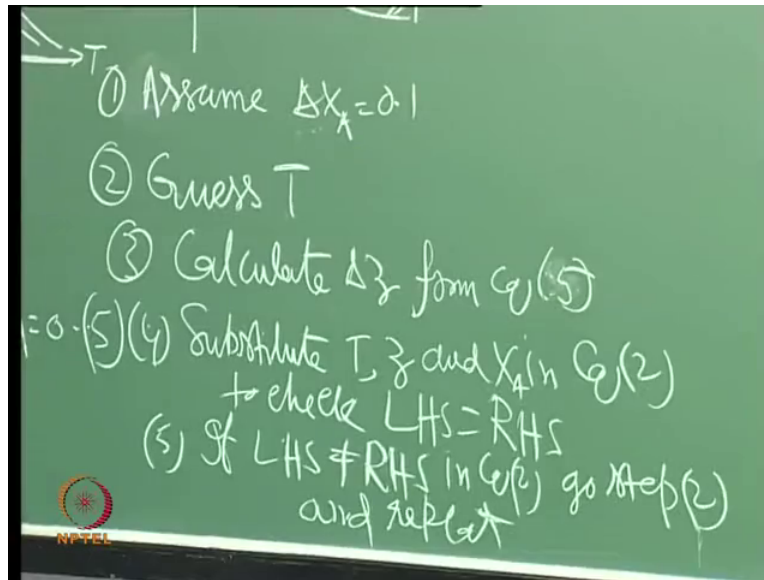 T
① Assume ΔX_A = 0.1
② Guess T
③ Calculate Δz form Eq (5)
=0 · (5) (4) Substitute T, z and X_A in Eq (2)
to check LHS = RHS
(5) If LHS ≠ RHS in Eq(2) go step (2)
and repeat
NPTEL